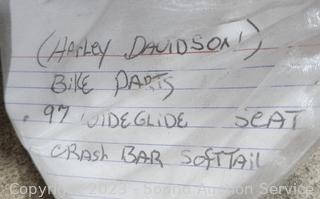 (HARLEY DAVIDSON!)
BIKE PARTS
. 97 WIDEGLIDE SEAT
CRASH BAR SOFTTAIL
Copyright 2023 - Sound Auction Service